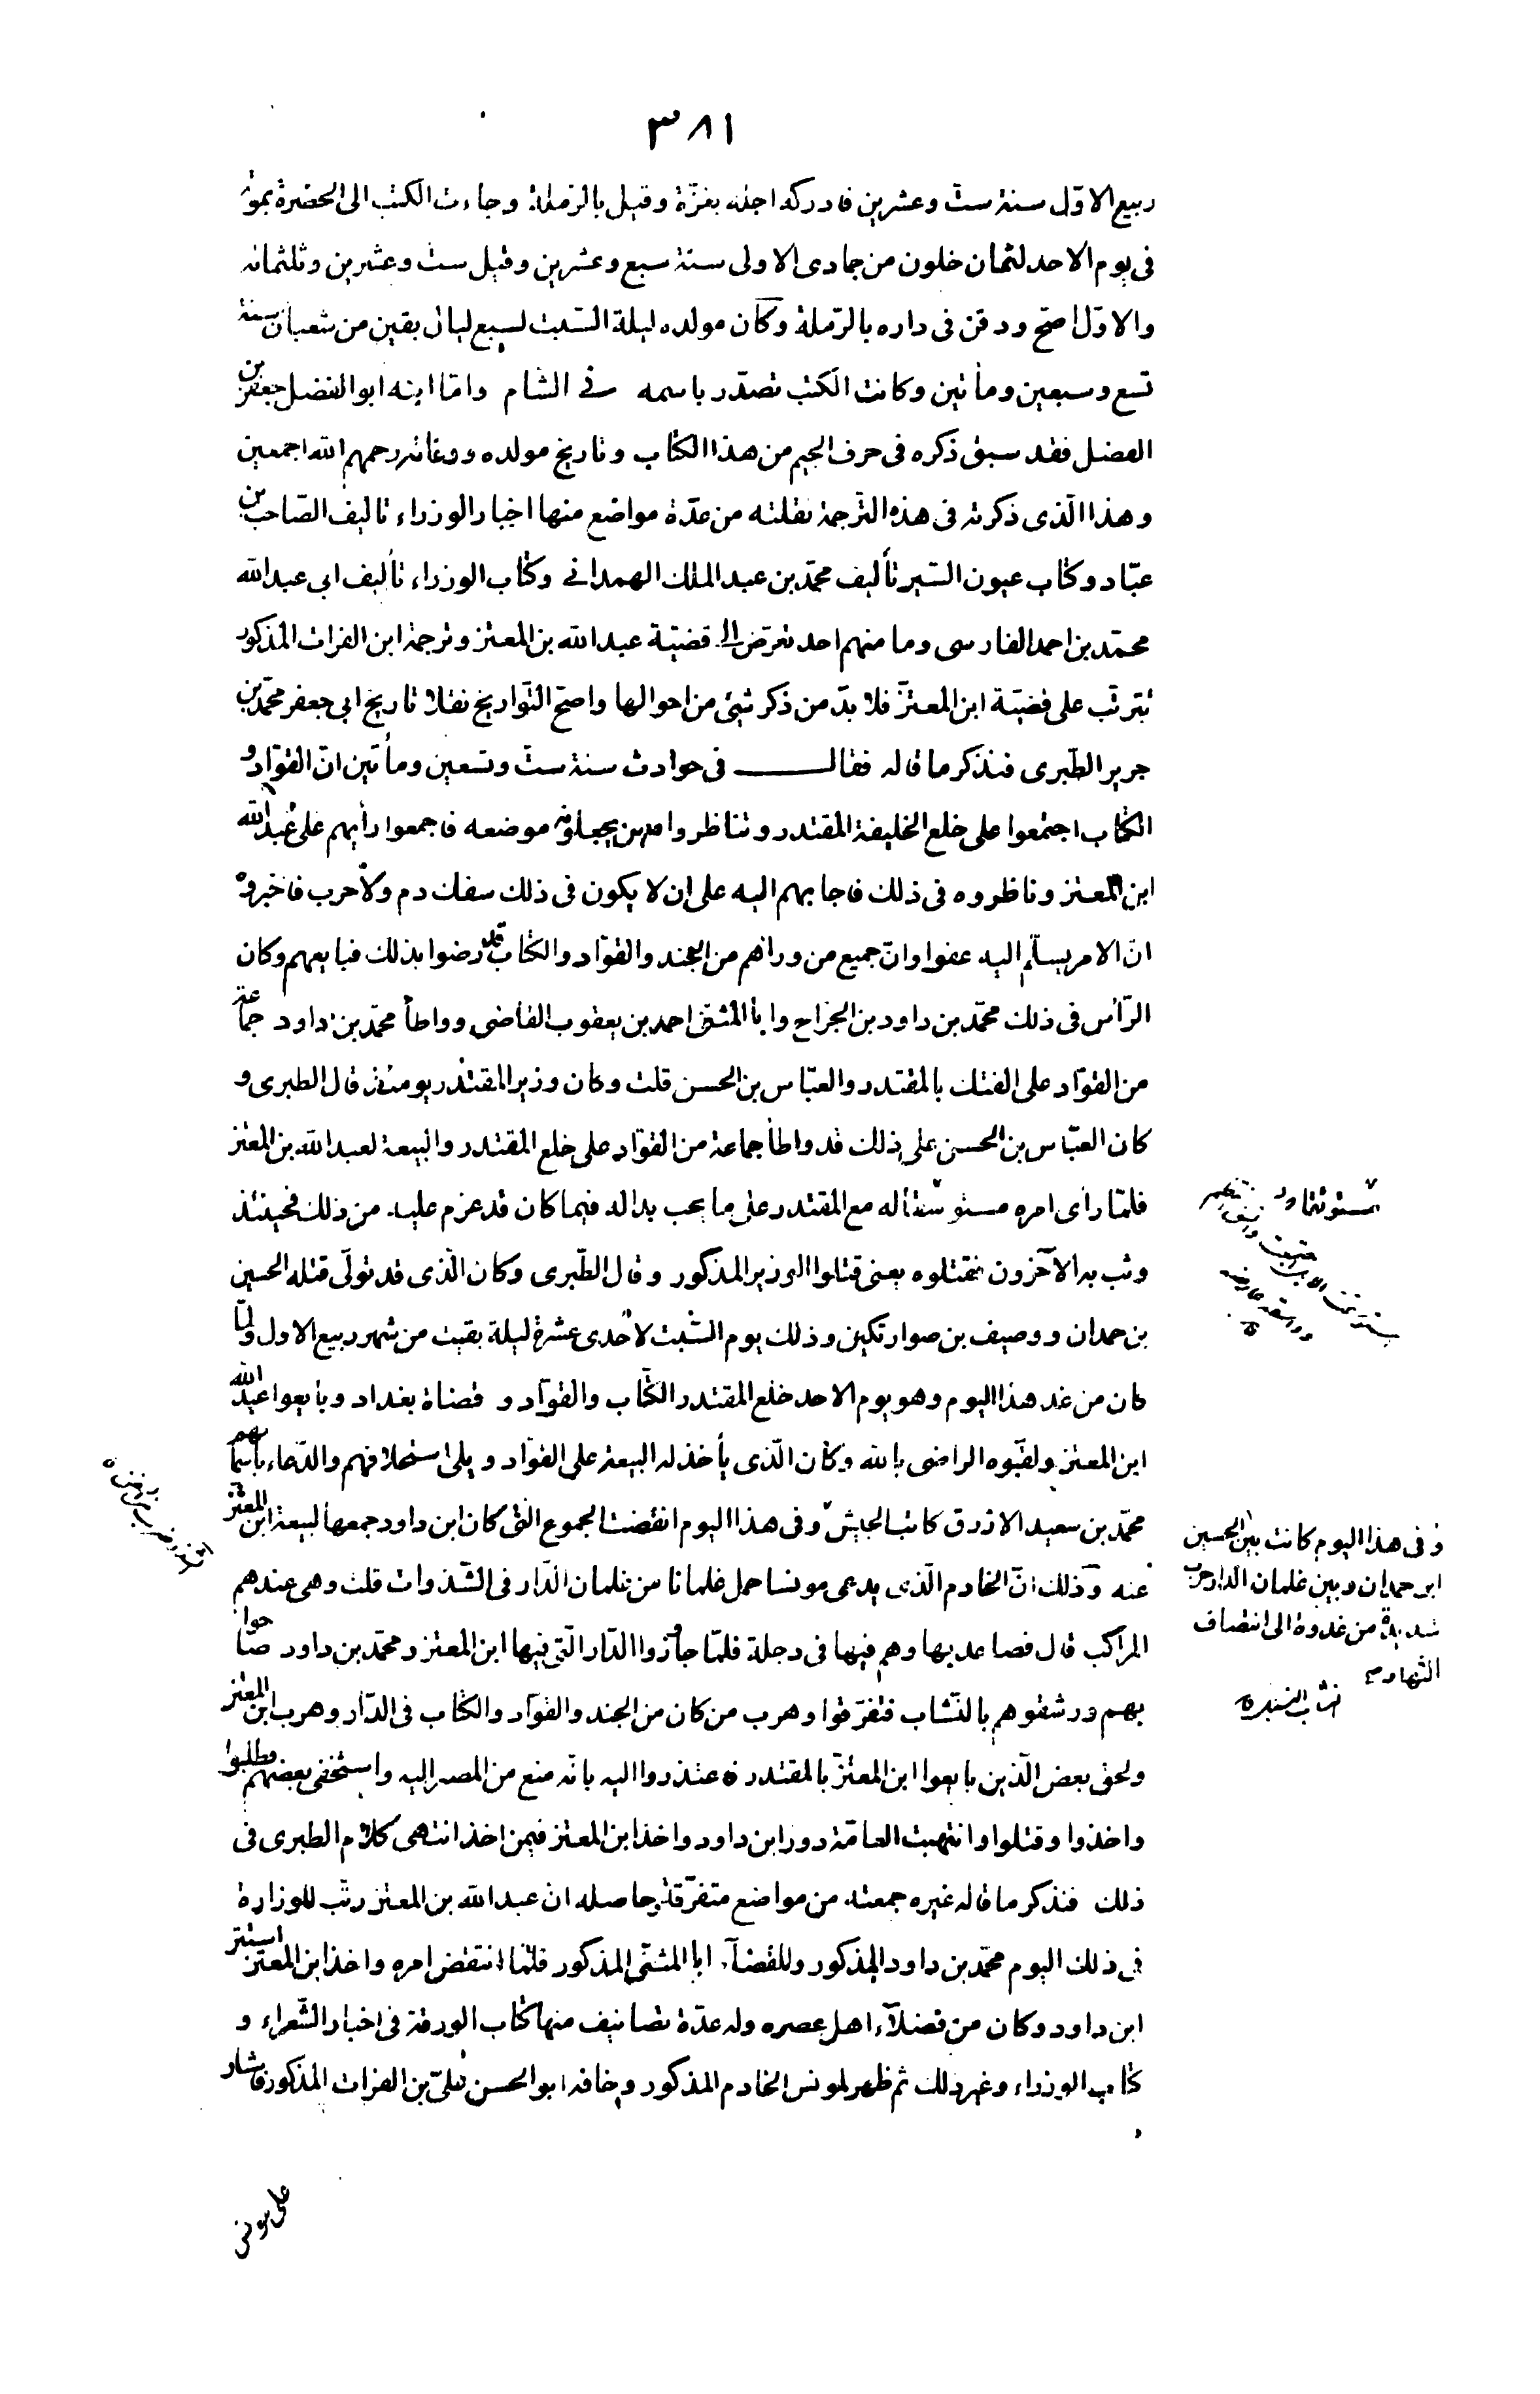 ٣٨١
ربيع الاوّل سنة ست وعشرين فادركه اجله بغزّة وقيل بالرّملة وجاءت الكتب الى الحضرة بموته
فى يوم الاحد لثمان خلون من جمادى الاولى سنة سبع وعشرين وقيل ست وعشرين وثلثمائه
والاوّل اصح ودفن فى داره بالرّملة وكان مولده ليلة السّبت لسبع ليال بقين من شعبان سنة
تسع وسبعين ومأتين وكانت الكتب تصدّر باسمه فى الشام وامّا ابنه ابو الفضل جعفر بن
الفضل فقد سبق ذكره فى حرف الجيم من هذا الكتاب وتاريخ مولده ووفاته رحمهم الله اجمعين
وهذا الّذى ذكرته فى هذه التّرجمة نقلته من عدّة مواضع منها اخبار الوزراء تاليف الصّاحب بن
عبّاد وكتاب عيون السّير تأليف محمّد بن عبد الملك الهمدانى وكتاب الوزراء تأليف ابى عبد الله
محمّد بن احمد الفارسى وما منهم احد تعرّض الى قضيّة عبد الله بن المعتز وترجمة ابن الفرات المذكور
تترتّب على قضيّة ابن المعتزّ فلا بدّ من ذكر شئ من احوالها واصحّ التّواريخ نقلا تاريخ ابى جعفر محمّد بن
جرير الطّبرى فنذكر ما قاله فقال فى حوادث سنة ستّ وتسعين ومأتين انّ القوّاد و
الكتّاب اجتمعوا على خلع الخليفة المقتدر وتناظروا فيمن يجعلونه موضعه فاجمعوا رأيهم على عبد الله
ابن المعتز وناظروه فى ذلك فاجابهم اليه على ان لا يكون فى ذلك سفك دم ولا حرب فاخبروه
انّ الامر يسلّم اليه عفوا وانّ جميع من ورائهم من الجند والقوّاد والكتّاب قد رضوا بذلك فبايعهم وكان
الرّأس فى ذلك محمّد بن داود بن الجرّاح وابا المثنّى احمد بن يعقوب القاضى وواطأ محمّد بن داود جماعة
من القوّاد على الفتك بالمقتدر والعبّاس بن الحسن قلت وكان وزير المقتدر يومئذ قال الطبرى و
كان العبّاس بن الحسن على ذلك قد واطأ جماعة من القوّاد على خلع المقتدر والبيعة لعبد الله بن المعتز
فلمّا رأى امره مستوثقا له مع المقتدر على ما يحب بدا له فيما كان قد عزم عليه من ذلك فحينئذ
وثب به الآخرون فقتلوه يعنى قتلوا الوزير المذكور وقال الطّبرى وكان الّذى قد تولّى قتله الحسين
بن حمدان ووصيف بن صوارتكين وذلك يوم السّبت لاحدى عشرة ليلة بقيت من شهر ربيع الاول ولمّا
كان من غد هذا اليوم وهو يوم الاحد خلع المقتدر الكتّاب والقوّاد وقضاة بغداد وبايعوا عبد الله
ابن المعتز ولقّبوه الراضى بالله وكان الّذى يأخذ له البيعة على القوّاد ويلى استحلافهم والدّعاء باسمائهم
محمّد بن سعيد الازرق كاتب الجيش وفى هذا اليوم انفضت الجموع التى كان ابن داود جمعها لبيعة ابن المعتز
عنه وذلك انّ الخادم الّذى يدعى مونسا حمل غلمانا من غلمان الدّار فى الشّذوات قلت وهى عندهم
المراكب قال فصاعد بها وهم فيها فى دجلة فلمّا جاوزوا الدّار الّتى فيها ابن المعتز ومحمّد بن داود صاحوا
بهم ورشقوهم بالنّشاب فتفرّقوا وهرب من كان من الجند والقوّاد والكتّاب فى الدّار وهرب ابن المعتز
ولحق بعض الّذين بايعوا ابن المعتزّ بالمقتدر فاعتذروا اليه بانّه منع من المصير اليه واستخفى بعضهم فطلبوا
واخذوا وقتلوا وانتهبت العامّة دور ابن داود واخذ ابن المعتز فيمن اخذ انتهى كلام الطبرى فى
ذلك فنذكر ما قاله غيره جمعته من مواضع متفرّقة حاصله ان عبد الله بن المعتز رتّب للوزارة
فى ذلك اليوم محمّد بن داود المذكور وللقضآء ابا المثنّى المذكور فلمّا انتقض امره واخذ ابن المعتز استتر
ابن داود وكان من فضلآء اهل عصره وله عدّة تصانيف منها كتاب الورقة فى اخبار الشّعراء و
كتاب الوزراء وغير ذلك ثم ظهر لمونس الخادم المذكور وخافه ابو الحسن علىّ بن الفرات المذكور فاشار
وفى هذا اليوم كانت بين الحسين
ابن حمدان وبين غلمان الدار حرب
شديدة من غدوة الى انتصاف
النهار صح
على مونس